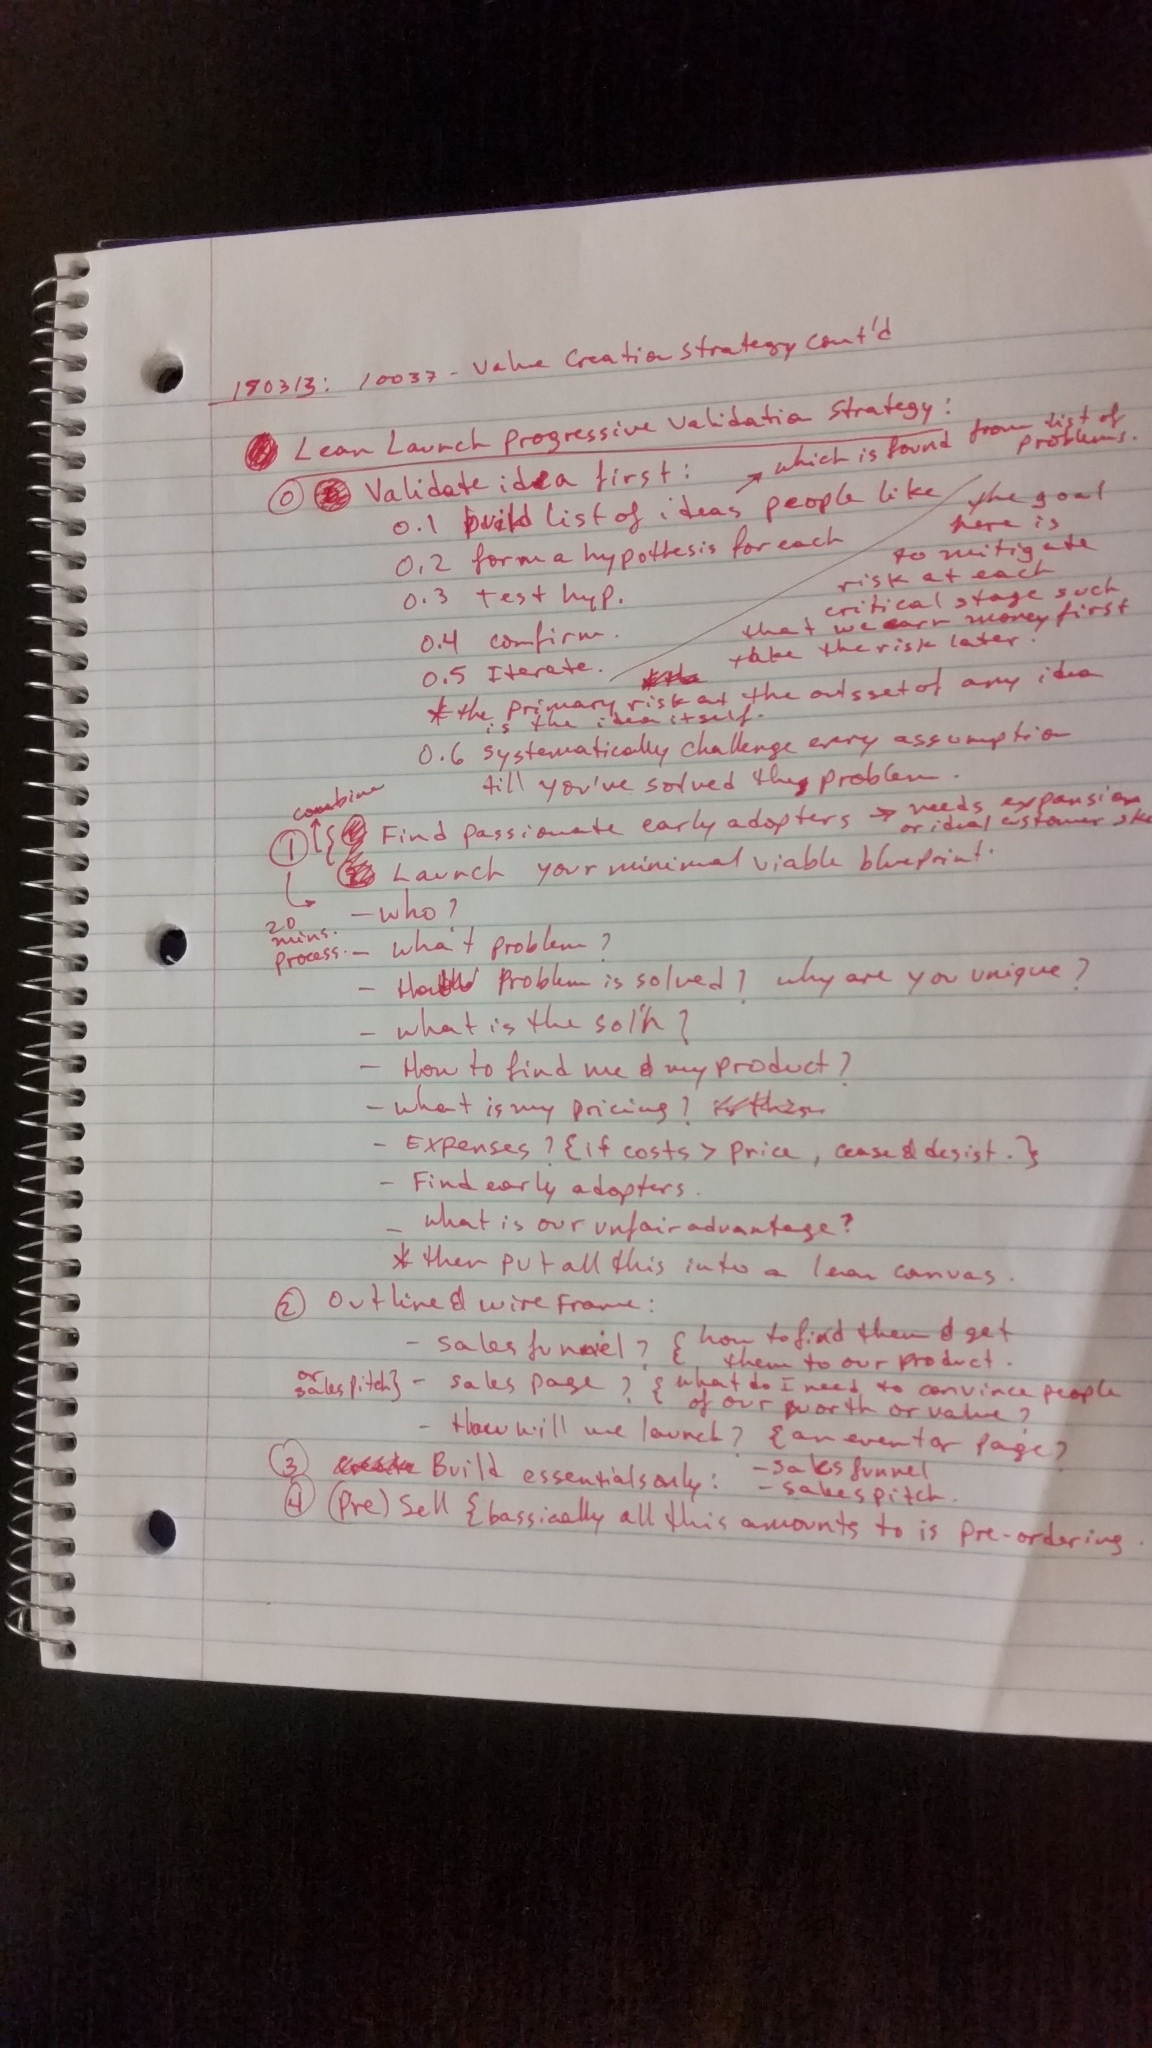 180313: 10037 - Value Creation Strategy Cont'd
Lean Launch progressive validation strategy:
⓪ Validate idea first:
→ which is found from list of problems.
0.1 build list of ideas people like
0.2 form a hypothesis for each
0.3 test hyp.
0.4 confirm.
0.5 Iterate.
the goal
here is
to mitigate
risk at each
critical stage such
that we earn money first
take the risk later.
* the primary risk at the outsset of any idea
is the idea itself.
0.6 systematically challenge every assumption
till you've solved the problem.
combine
① Find passionate early adopters → needs expansion
or ideal customer
Launch your minimal viable blueprint.
20
mins.
process.
- who?
- what problem?
- Problem is solved? why are you unique?
- what is the sol'n?
- How to find me & my product?
- what is my pricing?
- Expenses? {if costs > price, cease & desist.}
- Find early adopters.
- what is our unfair advantage?
* then put all this into a lean canvas.
② Outline & wire frame:
- sales funnel? { how to find them & get
them to our product.
or
sales pitch} - sales page? { what do I need to convince people
of our worth or value?
- How will we launch? {an event or page?
③ Build essentials only: - sales funnel
- sales pitch.
④ (Pre) Sell {bassically all this amounts to is pre-ordering.